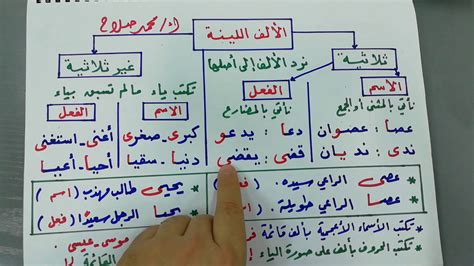 أ/ محمد صلاح
الألف اللينة
ثلاثية
نرد الألف إلى أصلها
غير ثلاثية
تكتب ياء مالم تسبق بياء
الاسم
نأتي بالمثنى أو الجمع
عصا : عصوان
ندى : نديان
الفعل
نأتي بالمضارع
دعا : يدعو
قضى : يقضي
الاسم
كبرى - صغرى
دنيا - سقيا
الفعل
أغنى - استغنى
أحيا - أعيا
* عصى الراعي سيده . ( فعل
* عصا الراعي طويلة . ( اسم
* يحيى طالب مهذب ( اسم )
* يحيا الرجل سعيدًا ( فعل )
* تكتب الأسماء الأعجمية بألف قائمة
موسى - عيسى
* تكتب الحروف بألف على صورة الياء
القائمة